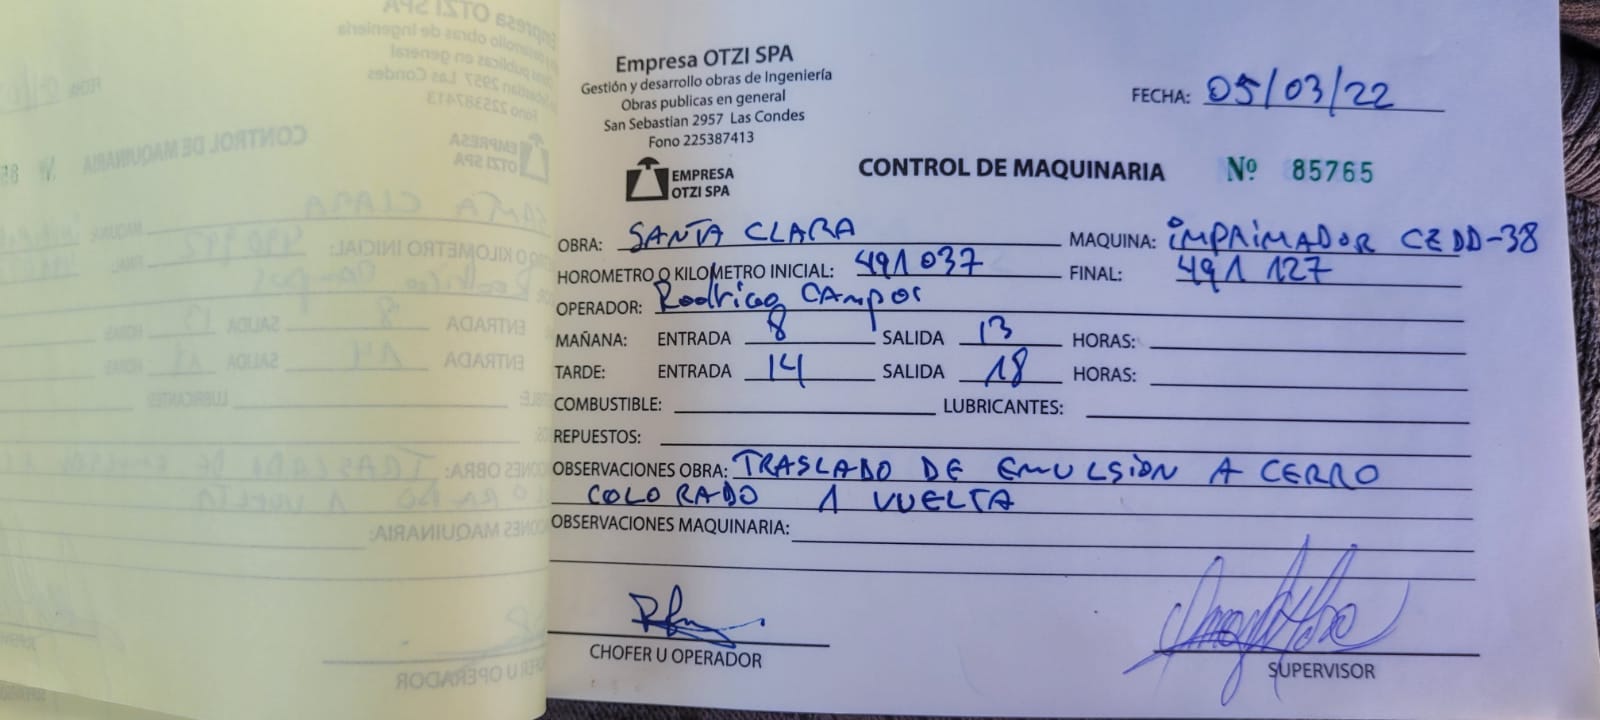 Empresa OTZI SPA
Gestión y desarrollo obras de Ingeniería
Obras publicas en general
San Sebastian 2957 Las Condes
Fono 225387413
EMPRESA
OTZI SPA
FECHA: 05/03/22
CONTROL DE MAQUINARIA Nº 85765
OBRA: SANTA CLARA MAQUINA: iMPRiMADOR CZDD-38
HOROMETRO O KILOMETRO INICIAL: 491 037 FINAL: 491 127
OPERADOR: Rodrigo CAmpos
MAÑANA: ENTRADA 8 SALIDA 13 HORAS:
TARDE: ENTRADA 14 SALIDA 18 HORAS:
COMBUSTIBLE: LUBRICANTES:
REPUESTOS:
OBSERVACIONES OBRA: TRASLADO DE EMULSiÓN A CERRO
COLORADO 1 VUELTA
OBSERVACIONES MAQUINARIA:
CHOFER U OPERADOR
SUPERVISOR